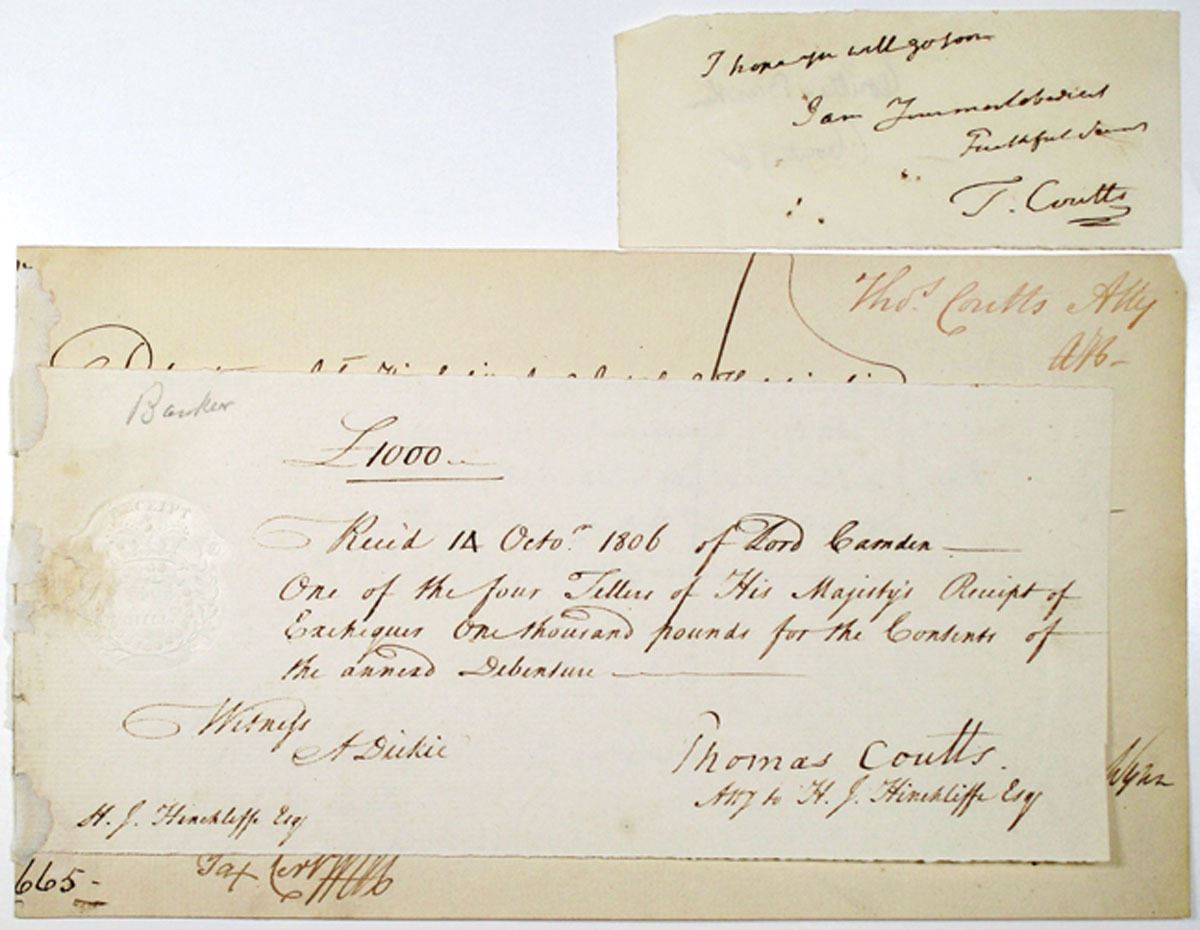 I hope you will go soon
I am Your most obedient
Faithful
T. Coutts
Thos Coutts Atty
Banker
£1000
RECEIPT
Recd 14 Octor 1806 of Lord Camden
One of the four Tellers of His Majesty's Receipt of
Exchequer One thousand pounds for the Contents of
the annexd Debenture
Witness
A Dickie
Thomas Coutts.
Atty to H. J. Hinchliffe Esq
H. J. Hinchliffe Esq
665
Tax Cert